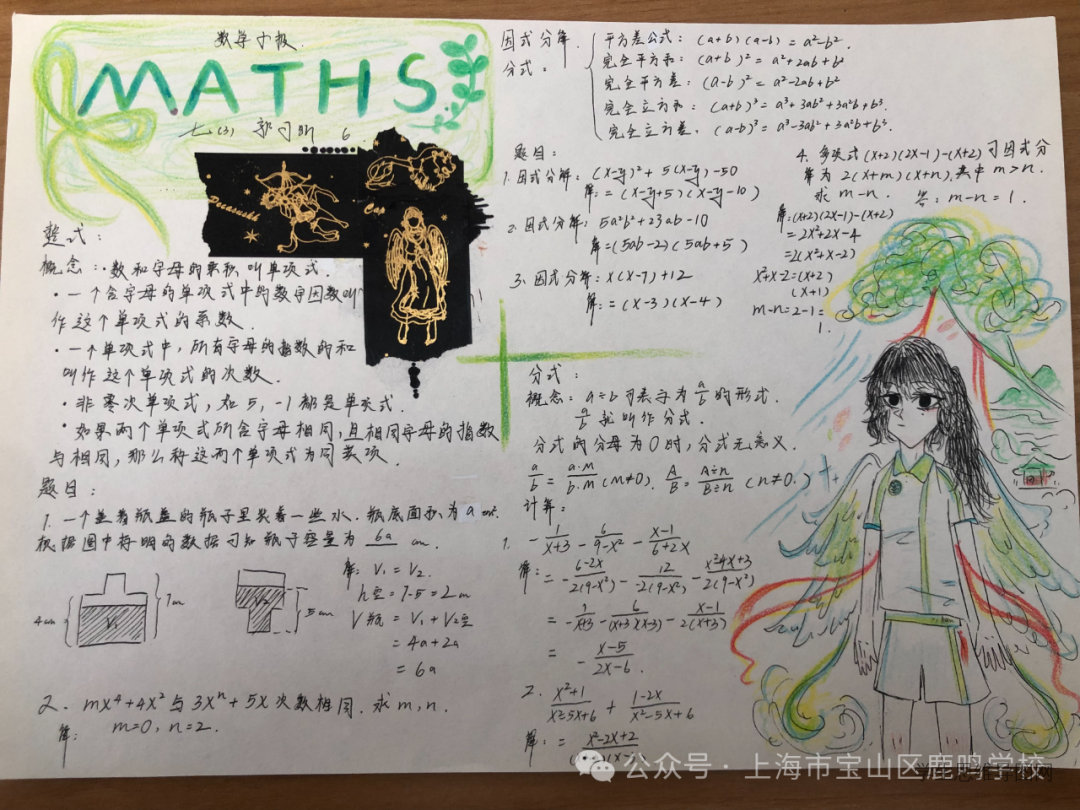 数学小报
MATHS
七(3) 郭习昕 6
Cap
整式：
概念：·数和字母的乘积叫单项式.
·一个含字母的单项式中的数字因数叫
作这个单项式的系数.
·一个单项式中，所有字母的指数的和
叫作这个单项式的次数.
·非零次单项式，如5，-1都是单项式.
·如果两个单项式所含字母相同，且相同字母的指数
与相同，那么称这两个单项式为同类项.
题目：
1. 一个盖着瓶盖的瓶子里装着一些水，瓶底面积为 a cm².
根据图中标明的数据可知瓶子容量为 6a cm.
4cm V₁ 7cm V₂ 5cm
解：V₁ = V₂.
h空 = 7-5 = 2 m
V瓶 = V₁ + V空
= 4a+2a
= 6a
2. mx⁴+4x² 与 3xⁿ+5x 次数相同. 求 m, n.
解： m=0, n=2.
因式分解.
分式：
平方差公式：(a+b)(a-b) = a²-b².
完全平方和：(a+b)² = a²+2ab+b²
完全平方差：(a-b)² = a²-2ab+b²
完全立方和：(a+b)³ = a³+3ab²+3a²b+b³.
完全立方差. (a-b)³ = a³-3ab²+3a²b+b³.
题目：
1. 因式分解：(x-y)² + 5(x-y)-50
解：= (x-y+5)(x-y-10)
2. 因式分解：5a²b²+23ab-10
解=(5ab-2)(5ab+5)
3. 因式分解：x(x-7)+12
解：=(x-3)(x-4)
4. 多项式(x+2)(2x-1)-(x+2)可因式分
解为 2(x+m)(x+n),其中 m>n.
求 m-n. 答：m-n=1.
解：(x+2)(2x-1)-(x+2)
= 2x²+2x-4
=2(x²+x-2)
x²+x-2=(x+2)
(x+1)
m-n=2-1=
1.
分式：
概念：a÷b可表字为 a/b 的形式.
a/b 就叫作分式.
分式的分母为0时，分式无意义.
a/b = a·M/b·M (M≠0). A/B = A÷n/B÷n (n≠0.)
计算：
1. - 1/(x+3) - 6/(9-x²) - (x-1)/(6+2x)
解：= - (6-2x)/2(9-x²) - 12/-2(9-x²) - (x²-4x+3)/2(9-x²)
= - 1/(x+3) - 6/(x+3)(x-3) - (x-1)/2(x+3)
= - (x-5)/(2x-6).
2. (x²+1)/(x²-5x+6) + (1-2x)/(x²-5x+6)
解：= (x²-2x+2)/
公众号·上海市宝山区鹿鸣学校